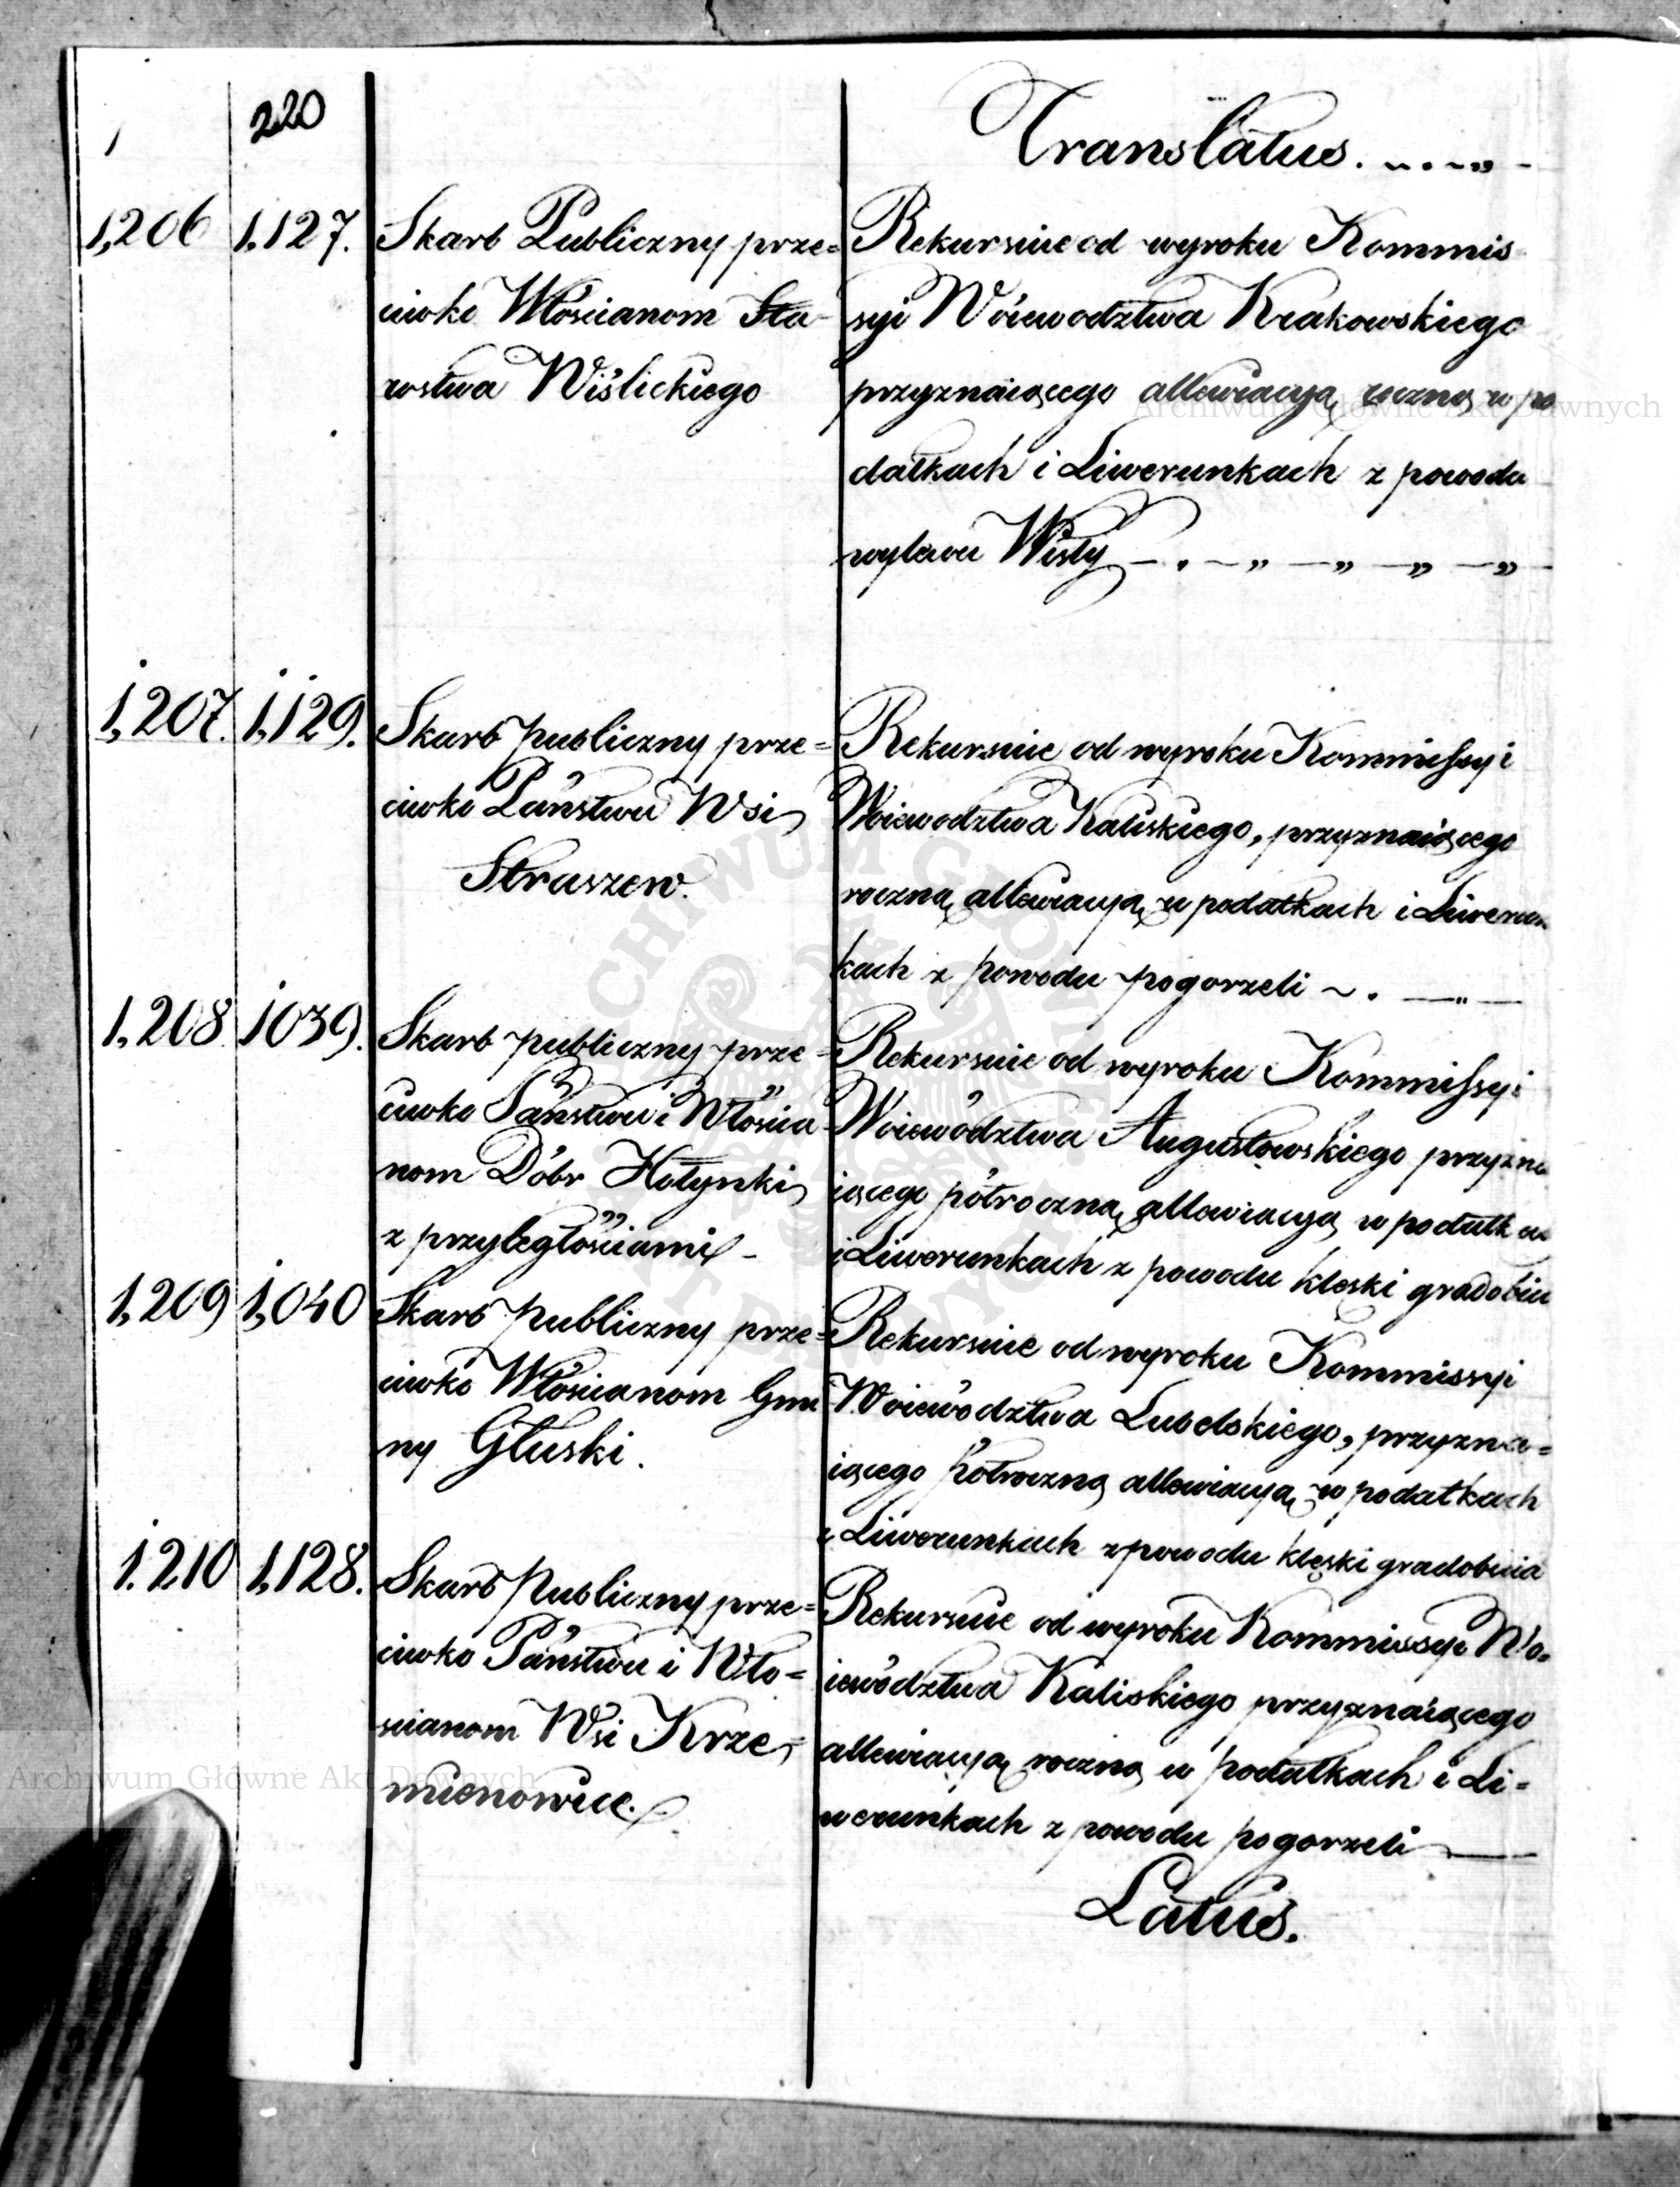 220
Translatus.
1,206 1,127. Skarb Publiczny prze=
ciwko Włościanom Sta-
rostwa Wiślickiego
Rekursuie od wyroku Kommis
syi Woiewodztwa Krakowskiego
przyznaiącego allewiacyą roczną w po
datkach i Liwerunkach z powodu
wylewu Wisły
1,207. 1,129. Skarb publiczny prze=
ciwko Państwu Wsi
Straszew.
Rekursuie od wyroku Kommissyi
Woiewodztwa Kaliskiego, przyznaiącego
roczną allewiacyą w podatkach i Liwerun
kach z powodu pogorzeli
1,208 1039. Skarb publiczny prze=
ciwko Państwu i Włościa
nom Dóbr Hołynki
z przyległościami
Rekursuie od wyroku Kommissyi
Woiewództwa Augustowskiego przyzna
iącego półroczną allewiacyą w podatk
i Liwerunkach z powodu klęski gradobiu
1,209 1,040 Skarb publiczny prze=
ciwko Włościanom Gmi
ny Głuski.
Rekursuie od wyroku Kommissyi
Woiewództwa Lubelskiego, przyzna=
iącego półroczną allewiacyą w podatkach
i Liwerunkach z powodu klęski gradobicia
1.210 1,128. Skarb Publiczny prze=
ciwko Państwu i Wło=
scianom Wsi Krze=
mienowice.
Rekursuie od wyroku Kommissyi Wo=
iewództwa Kaliskiego przyznaiącego
allewiacyą roczną w podatkach i Li=
werunkach z powodu pogorzeli
Latus.
Archiwum Główne Akt Dawnych
Archiwum Główne Akt Dawnych